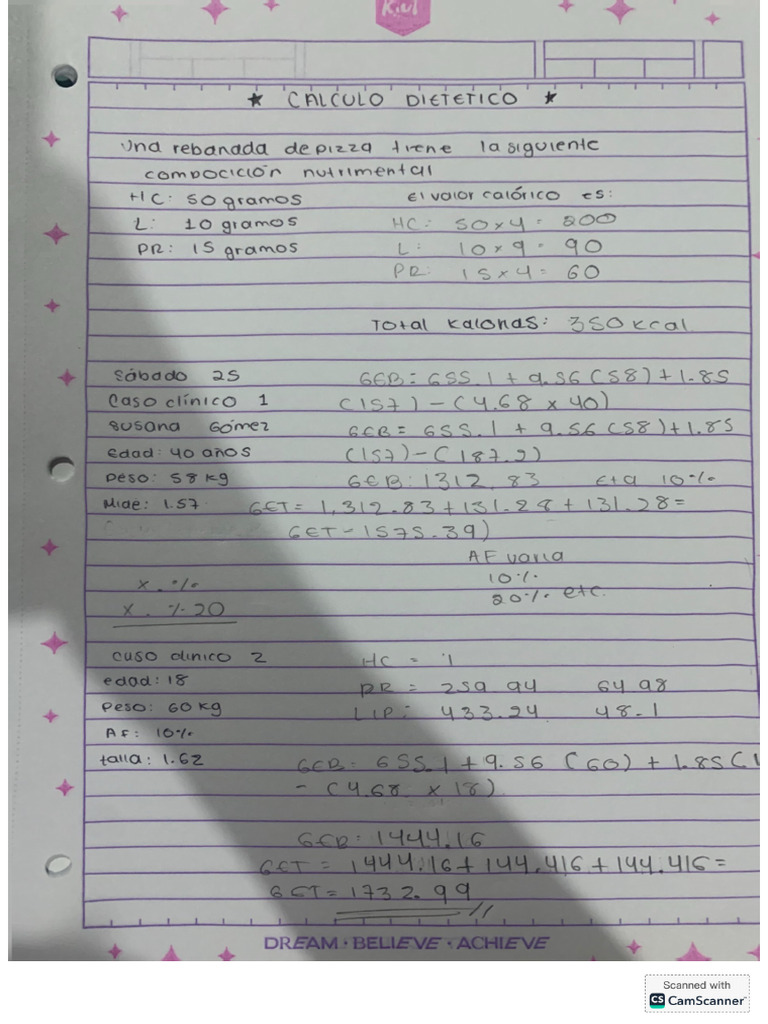 Kiut
★ CALCULO DIETETICO ★
Una rebanada de pizza tiene la siguiente
composición nutrimental
HC: 50 gramos El valor calórico es:
L: 10 gramos HC: 50 x 4 = 200
PR: 15 gramos L: 10 x 9 = 90
PR: 15 x 4 = 60
Total Kalorias: 350 kcal
Sábado 25 GEB = 655.1 + 9.56 (58) + 1.85
Caso clínico 1 (157) - (4.68 x 40)
Susana Gómez GEB = 655.1 + 9.56 (58) + 1.85
Edad: 40 años (157) - (187.2)
Peso: 58 kg GEB: 1312.83 Eta 10%
Mide: 1.57 GET = 1,312.83 + 131.28 + 131.28 =
GET - 1575.39)
AF varia
X . % 10%
X . % 20 20% etc.
Caso clinico 2 HC = 1
edad: 18 PR = 259.94 64.98
Peso: 60 kg LIP: 433.24 48.1
AF: 10%
talla: 1.62 GEB = 655.1 + 9.56 (60) + 1.85 (1
- (4.68 x 18)
GEB: 1444.16
GET = 1444.16 + 144.416 + 144.416 =
GET = 1732.99
DREAM · BELIEVE · ACHIEVE
Scanned with
CS CamScanner